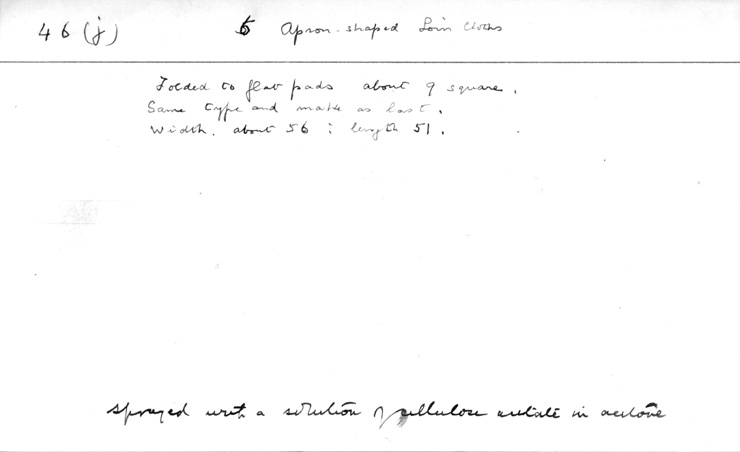 46 (j) 5 Apron-shaped Loin Cloths
Folded to flat pads about 9 square.
Same type and make as last.
Width. about 56 ; length 51.
Sprayed with a solution of cellulose acetate in acetone